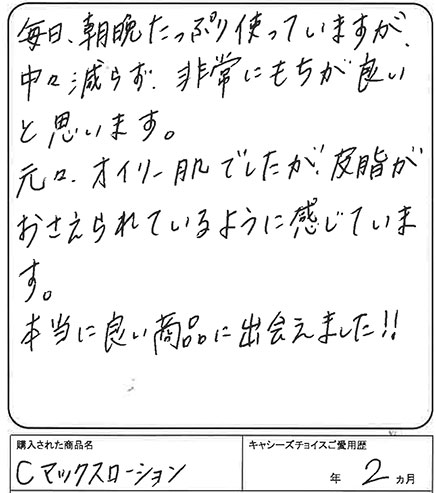 毎日、朝晩たっぷり使っていますが、
中々減らず、非常にもちが良い
と思います。
元々、オイリー肌でしたが、皮脂が
おさえられているように感じていま
す。
本当に良い商品に出会えました!!
購入された商品名
Cマックスローション
キャシーズチョイスご愛用歴
年 2 ヵ月